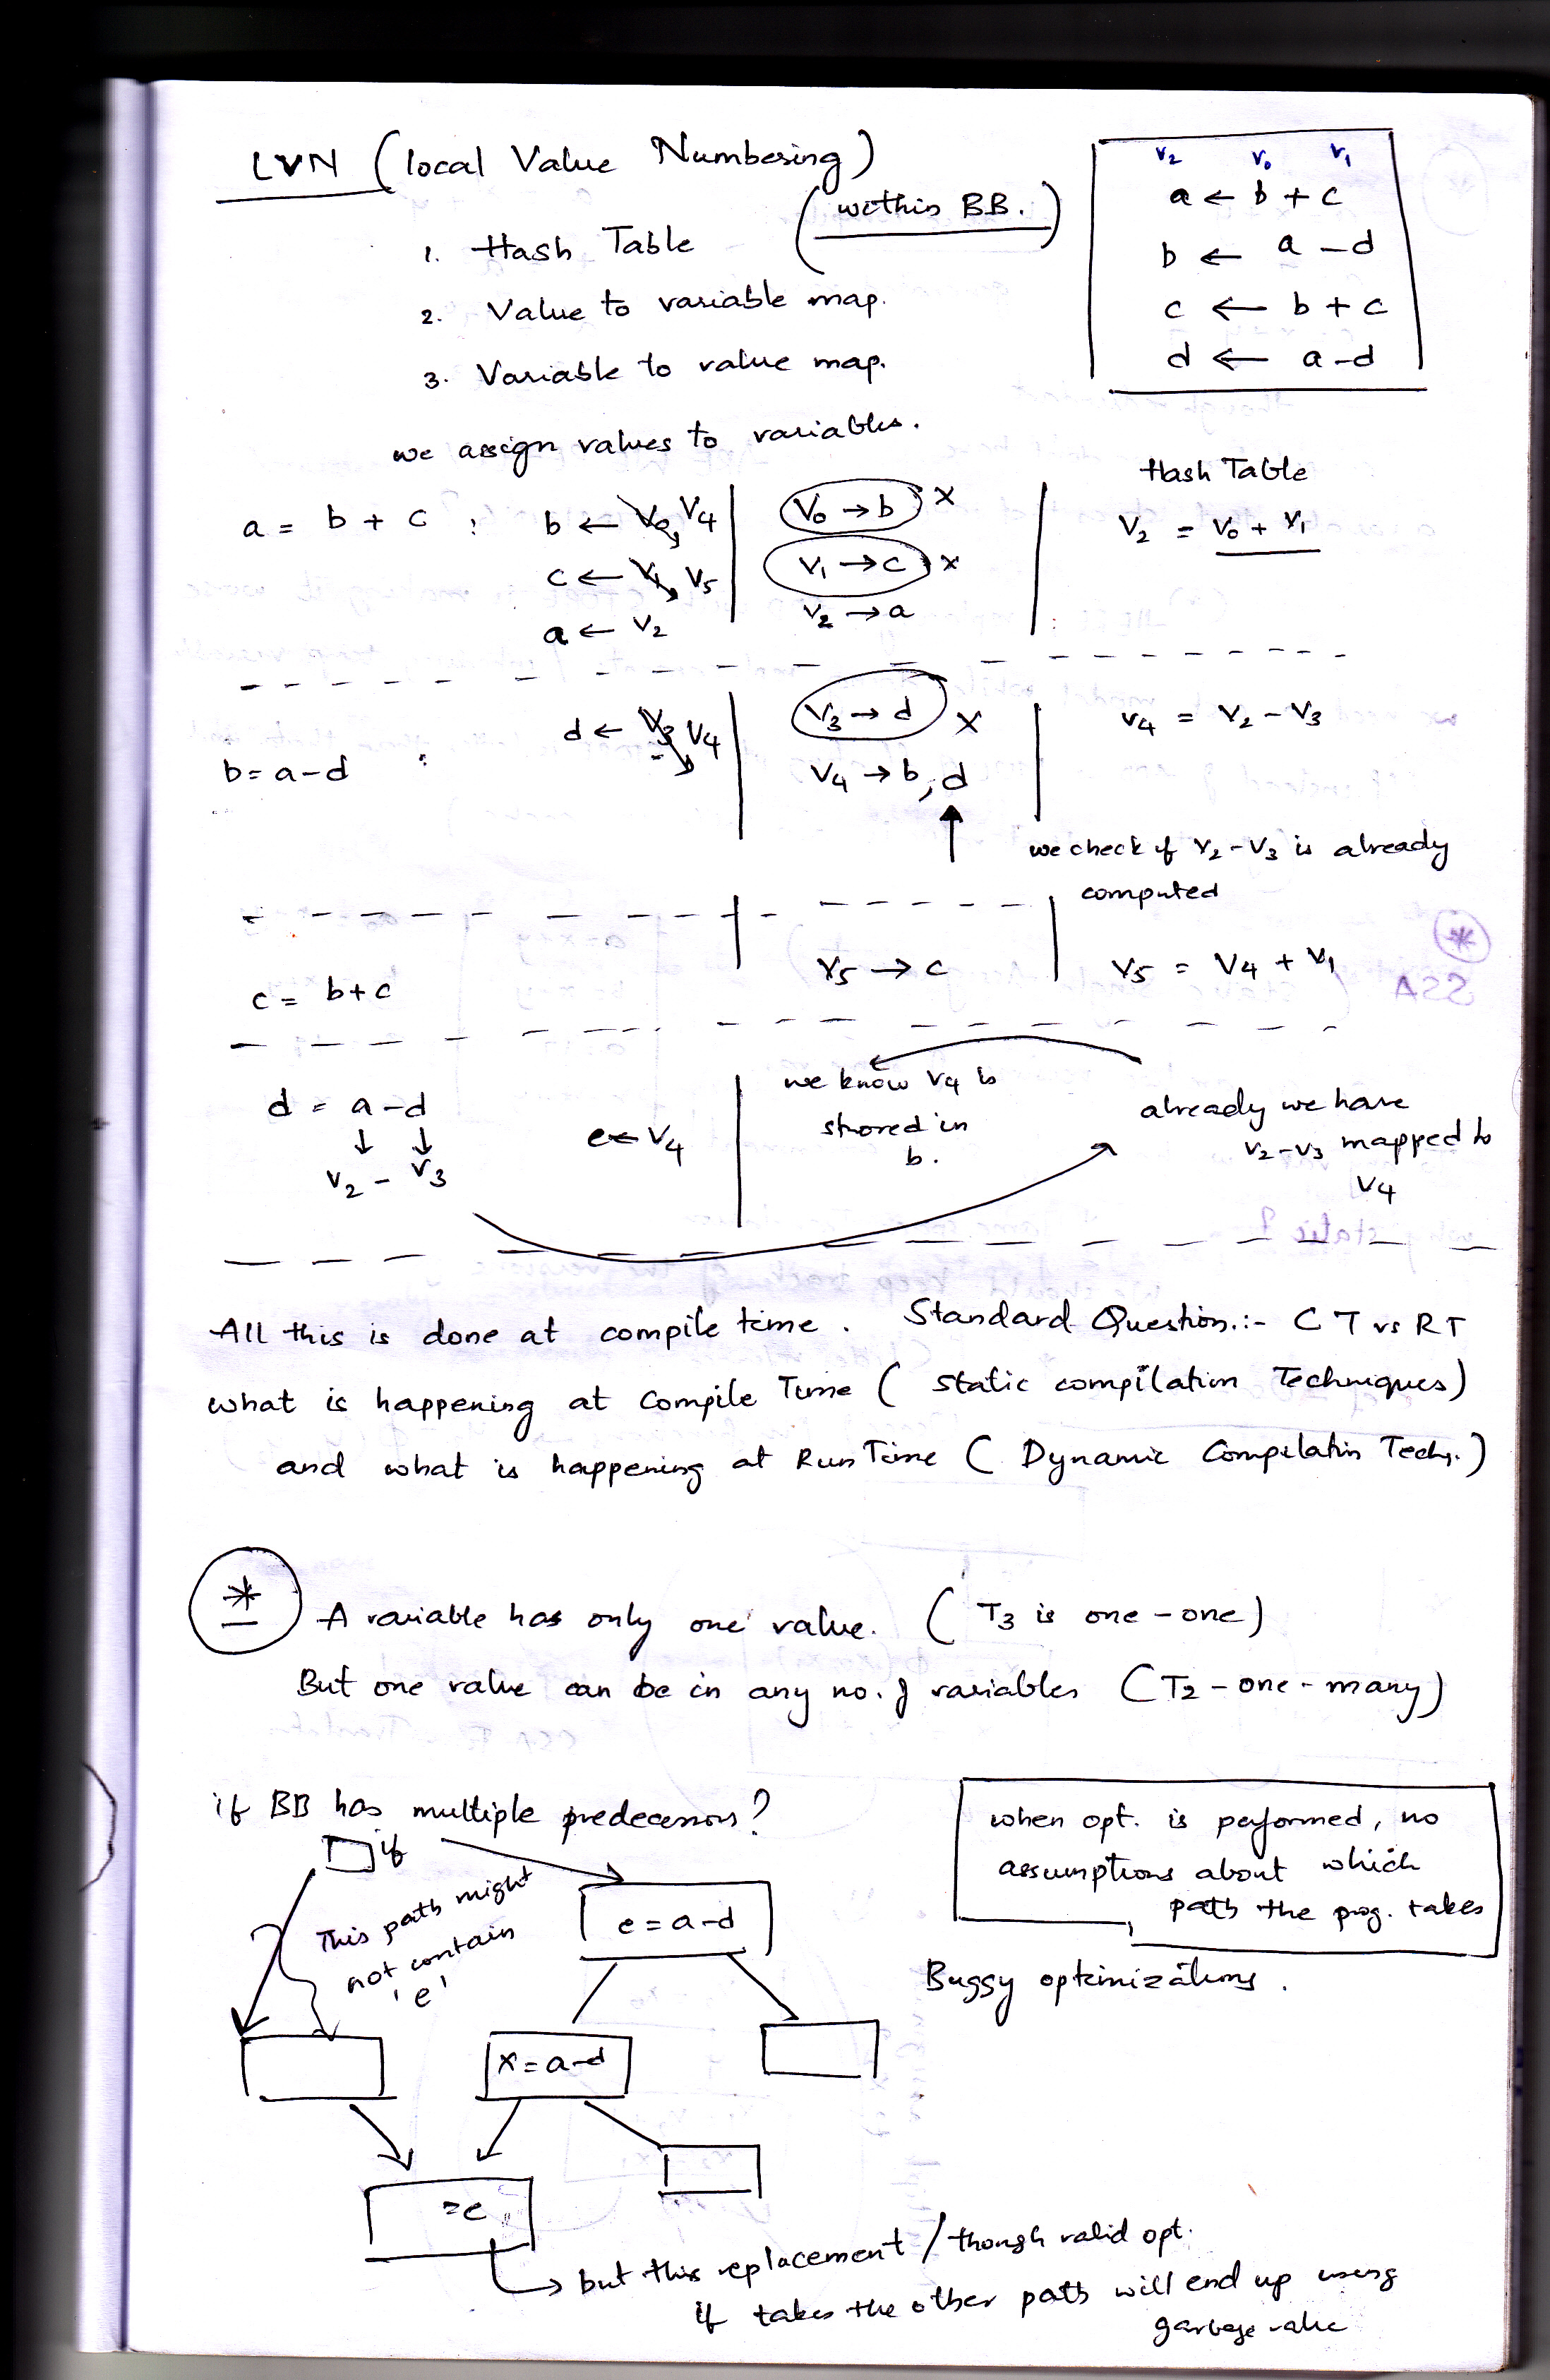 LVN (local Value Numbering)
(within BB.)
1. Hash Table
2. Value to variable map.
3. Variable to value map.
we assign values to variables.
V2 V0 V1
a ← b + c
b ← a - d
c ← b + c
d ← a - d
Hash Table
a = b + c : b ← V0 V4 | V0 → b x | V2 = V0 + V1
c ← V1 V5 | V1 → c x
a ← V2 | V2 → a
d ← V3 V4 | V3 → d x | V4 = V2 - V3
b = a - d : V4 → b, d
we check if V2 - V3 is already
computed
c = b + c V5 → c | V5 = V4 + V1
d = a - d
↓ ↓
V2 - V3
e ← V4
we know V4 is
stored in
b.
already we have
V2 - V3 mapped to
V4
All this is done at compile time. Standard Question:- CT vs RT
what is happening at Compile Time (static compilation Techniques)
and what is happening at Run Time (Dynamic Compilatin Techs.)
* A variable has only one value. (T3 is one-one)
But one value can be in any no. of variables (T2 - one-many)
if BB has multiple predecessors?
if
This path might
not contain
'e'
e = a-d
x = a-d
= e
when opt. is performed, no
assumptions about which
path the prog. takes
Buggy optimizations.
but this replacement / though valid opt.
if takes the other path will end up using
garbage value